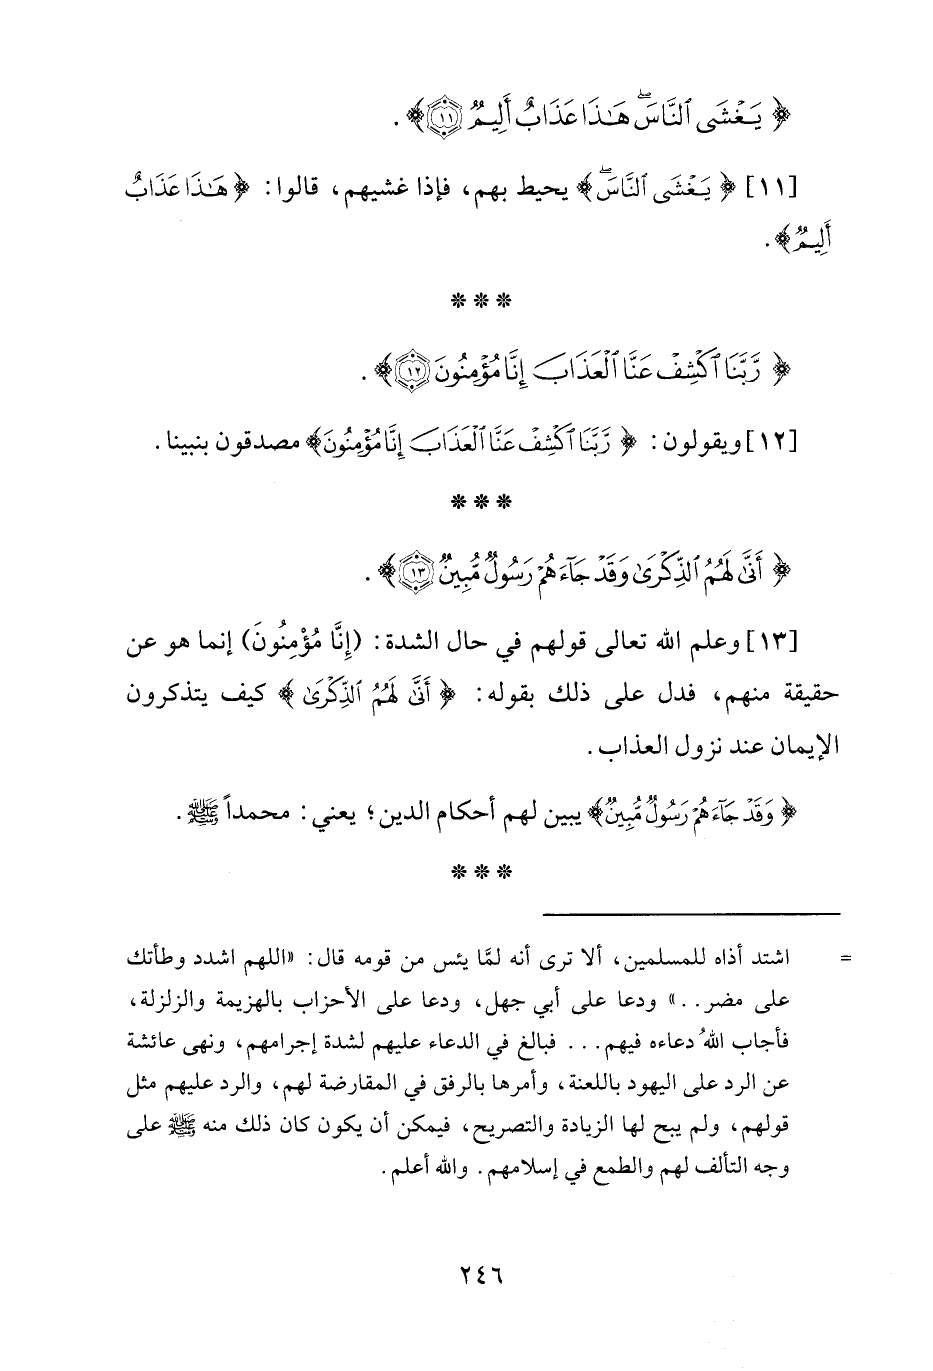 ﴿ يَغْشَى ٱلنَّاسَۖ هَـٰذَا عَذَابٌ أَلِيمٌ ۝١١﴾ .
[١١] ﴿ يَغْشَى ٱلنَّاسَۖ ﴾ يحيط بهم، فإذا غشيهم، قالوا: ﴿ هَـٰذَا عَذَابٌ
أَلِيمٌ ﴾ .
* * *
﴿ رَّبَّنَا ٱكْشِفْ عَنَّا ٱلْعَذَابَ إِنَّا مُؤْمِنُونَ ۝١٢﴾ .
[١٢] ويقولون: ﴿ رَّبَّنَا ٱكْشِفْ عَنَّا ٱلْعَذَابَ إِنَّا مُؤْمِنُونَ ﴾ مصدقون بنبينا .
* * *
﴿ أَنَّىٰ لَهُمُ ٱلذِّكْرَىٰ وَقَدْ جَآءَهُمْ رَسُولٌ مُّبِينٌ ۝١٣﴾ .
[١٣] وعلم الله تعالى قولهم في حال الشدة: (إِنَّا مُؤْمِنُونَ) إنما هو عن
حقيقة منهم، فدل على ذلك بقوله: ﴿ أَنَّىٰ لَهُمُ ٱلذِّكْرَىٰ ﴾ كيف يتذكرون
الإيمان عند نزول العذاب .
﴿ وَقَدْ جَآءَهُمْ رَسُولٌ مُّبِينٌ ﴾ يبين لهم أحكام الدين؛ يعني: محمداً ﷺ .
* * *
= اشتد أذاه للمسلمين، ألا ترى أنه لمَّا يئس من قومه قال: «اللهم اشدد وطأتك
على مضر . . » ودعا على أبي جهل، ودعا على الأحزاب بالهزيمة والزلزلة،
فأجاب اللهُ دعاءه فيهم . . . فبالغ في الدعاء عليهم لشدة إجرامهم، ونهى عائشة
عن الرد على اليهود باللعنة، وأمرها بالرفق في المقارضة لهم، والرد عليهم مثل
قولهم، ولم يبح لها الزيادة والتصريح، فيمكن أن يكون كان ذلك منه ﷺ على
وجه التألف لهم والطمع في إسلامهم . والله أعلم .
٢٤٦